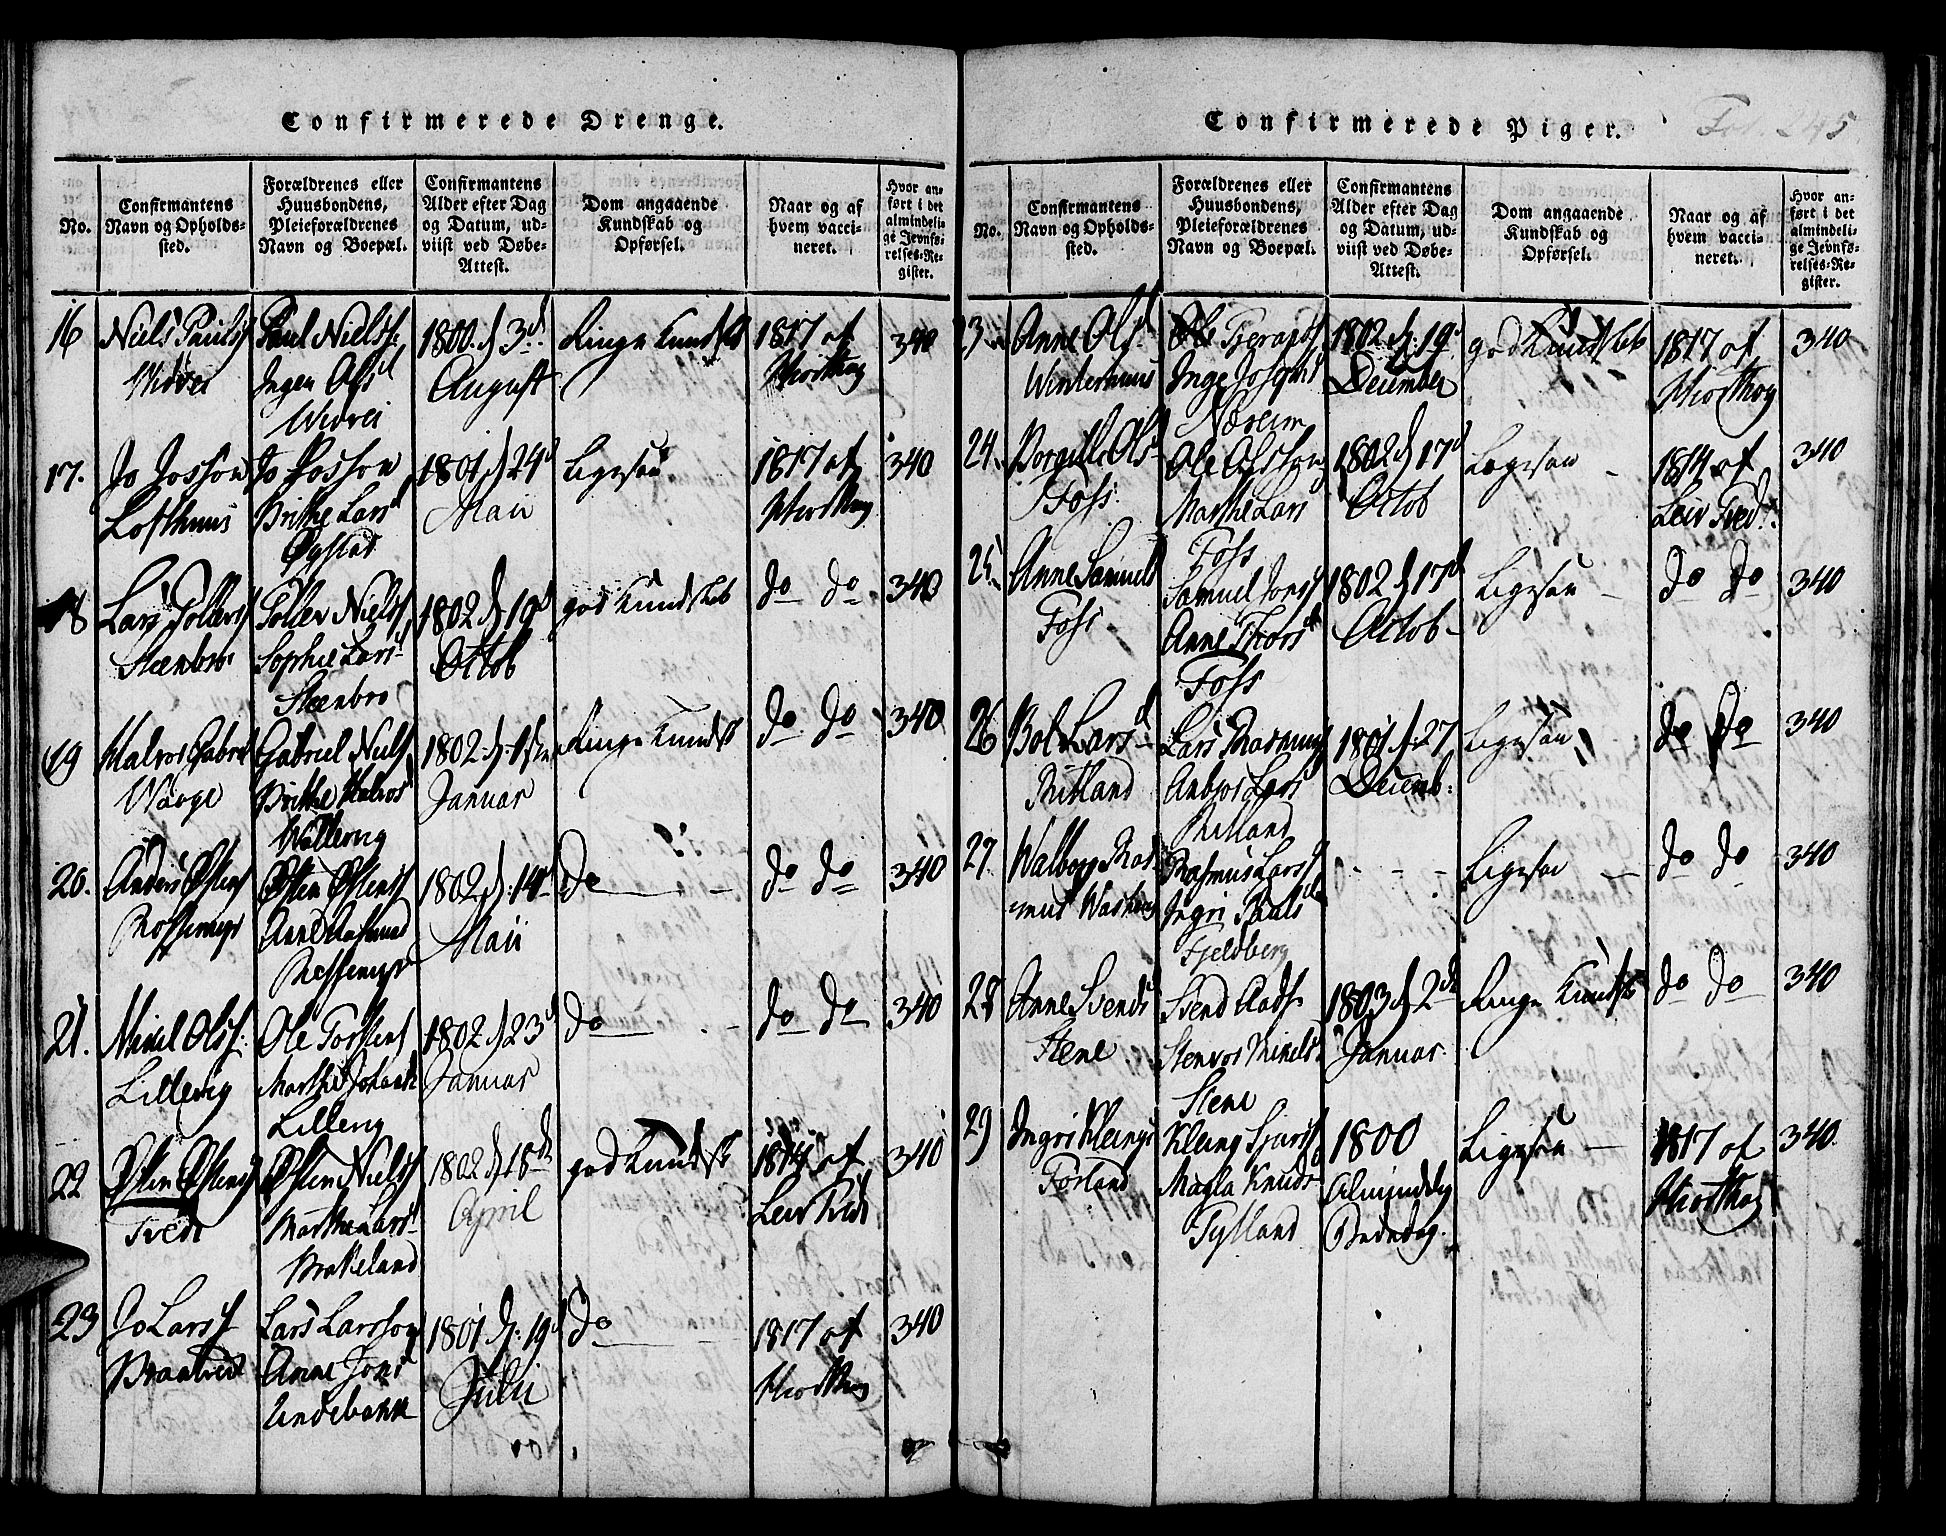 Confirmerede Drenge.
No.
Confirmantens
Navn og Opholds-
sted.
Forældrenes eller
Huusbondens,
Pleieforældrenes
Navn og Boepæl.
Confirmantens
Alder efter Dag
og Datum, ud-
viist ved Døbe-
Attest.
Dom angaaende
Kundskab og
Opførsel.
Naar og af
hvem vacci-
neret.
Hvor an-
ført i det
almindeli-
ge Jevnfø-
relses-Re-
gister.
16
Niels Pauls
Widvei
Paul Niels
Ingen Ols
Widvei
1800. d 3d.
August
Ringe Kundsk
1817 af
Hiorthøy
340
17.
Jo Josson
Lofthuus
Jo Josson
Brithe Lars
Øystad
1801 d 24d
Maii
Ligesaa
1817 af
Hiorthøy
340
18
Lars Tollevs
Steenbro
Toller Niels
Sophie Lars
Steenbro
1802 d 10d
Octob
god Kundskab
do do
340
19
Halvor Gabriel
Waage
Gabriel Niels
Brithe Halvor
Wallevig
1802 d. 1ste
Januar
Ringe Kundsk
do do
340
20.
Anders Østens
Østen Østens
Anne Aasmund
1802 d. 14d
Maii
do
do do
340
21.
Mikel Ols
Lillevig
Ole Torstens
Marthe
Lillevig
1802 d 23d
Januar
do
do do
340
22
Østen Østens
Tvedt
Østen Niels
Marthe Lars
Brakeland
1802 d 18de
April
god Kundsk
1814 af
Leir
340
23
Jo Lars
Braatvedt
Lars Larsson
Anne Jons
Lindebækk
1801 d. 19d
Julii
do
1817 af
Hiorthøy
340
Confirmerede Piger.
Fol. 245
No.
Confirmantens
Navn og Opholds-
sted.
Forældrenes eller
Huusbondens,
Pleieforældrenes
Navn og Boepæl.
Confirmantens
Alder efter Dag
og Datum, ud-
viist ved Døbe-
Attest.
Dom angaaende
Kundskab og
Opførsel.
Naar og af
hvem vacci-
neret.
Hvor an-
ført i det
almindeli-
ge Jevnfø-
relses-Re-
gister.
23
Anne Ols
Winterhuus
Ole
Inge
Næreim
1802 d. 19d
December
god Kundskab
1817 af
Hiorthøy
340
24.
Borgille Ols
Foss
Ole Olsson
Marthe Lars
Foss
1802 d 17d
Octob
Ligesaa
1814 af
Leir Tved
340
25.
Anne Samuels
Foss
Samuel Jons
Anne Thors
Foss
1802 d 17d
Octob
Ligesaa
do do
340
26
Bol Lars
Ritland
Lars Rasmus
Anbjor Lars
Ritland
1801 d. 27
Decemb:
Ligesaa
do do
340
27
Walborg Ras-
mus
Rasmus Lars
Ingri Pauls
Fjeldberg
Ligesaa
do do
340
28
Anne Svends
Stene
Svend Aads
Stenvor Mikels
Stene
1803 d 2de
Januar
Ringe Kundsk
do do
340
29
Ingri Kleings
Førland
Kleing
Magla Knuds
Tylland
1800
Alminddlig
Bededag.
Ligesaa
1817 af
Hiorthøy
340